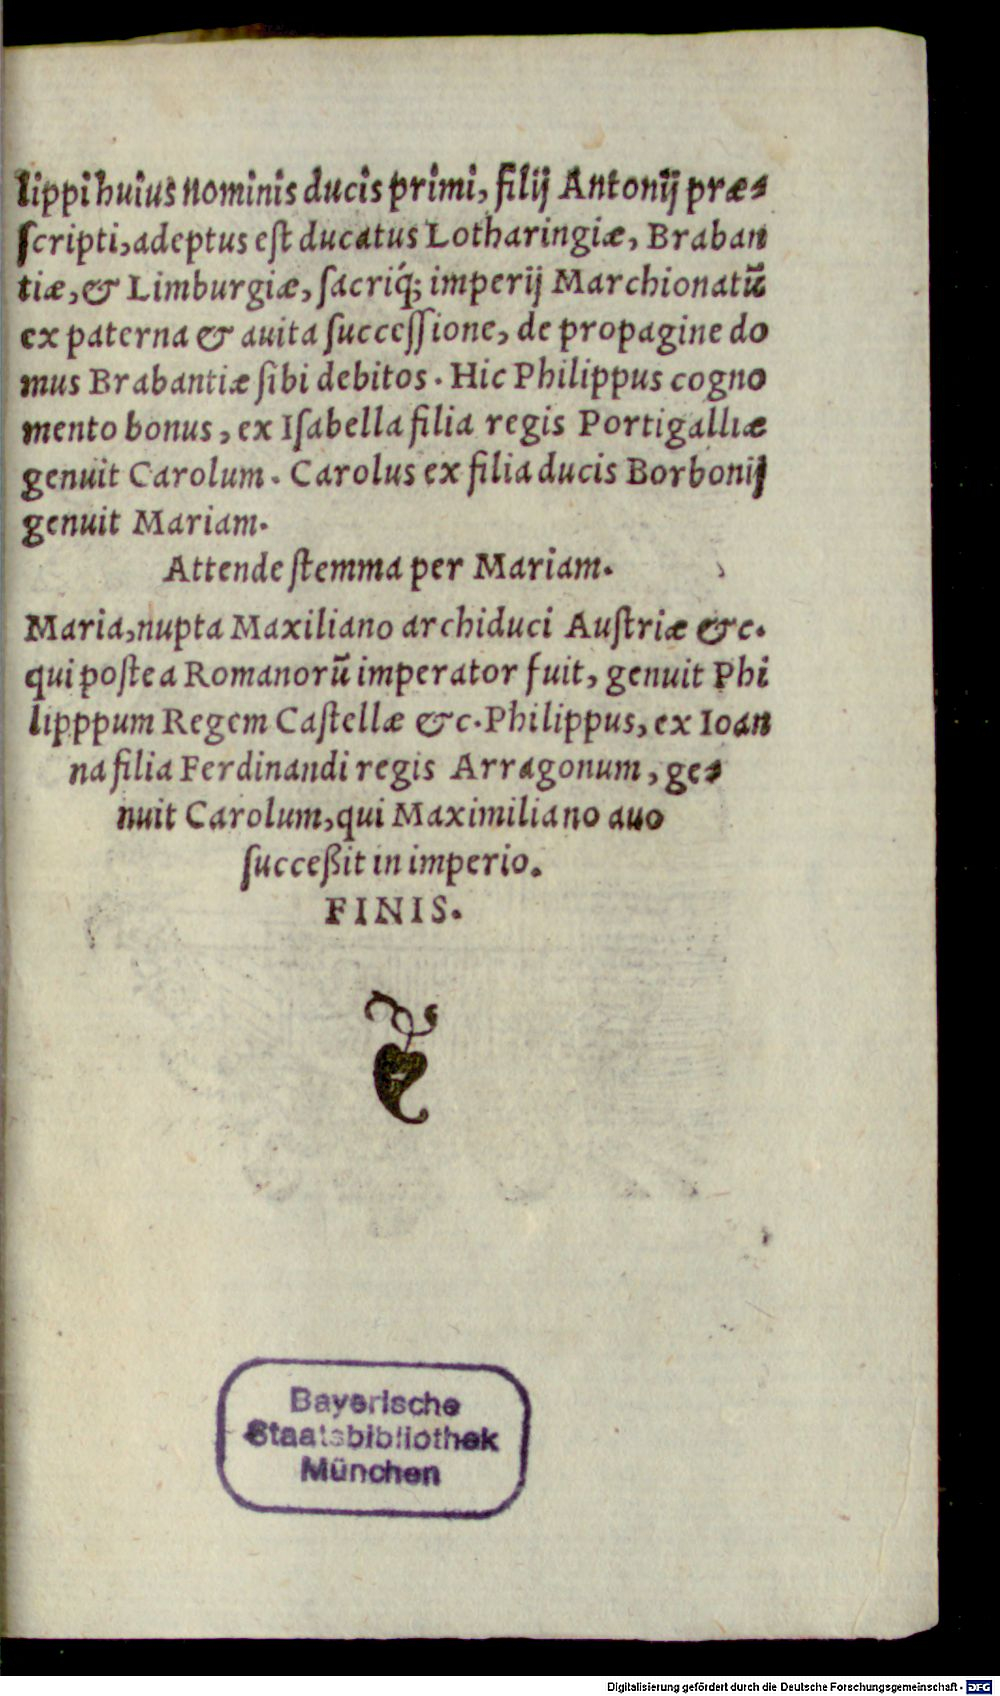 lippi huius nominis ducis primi, filij Antonij præ-
ſcripti, adeptus eſt ducatus Lotharingiæ, Braban
tiæ, & Limburgiæ, ſacriq́; imperij Marchionatū
ex paterna & auita ſucceſſione, de propagine do
mus Brabantiæ ſibi debitos. Hic Philippus cogno
mento bonus, ex Iſabella filia regis Portigalliæ
genuit Carolum. Carolus ex filia ducis Borbonij
genuit Mariam.
Attende ſtemma per Mariam.
Maria, nupta Maxiliano archiduci Auſtriæ &c.
qui poſtea Romanorū imperator fuit, genuit Phi
lipppum Regem Caſtellæ &c. Philippus, ex Ioan
na filia Ferdinandi regis Arragonum, ge-
nuit Carolum, qui Maximiliano auo
ſucceßit in imperio.
FINIS.
Bayerische
Staatsbibliothek
München
Digitalisierung gefördert durch die Deutsche Forschungsgemeinschaft - DFG